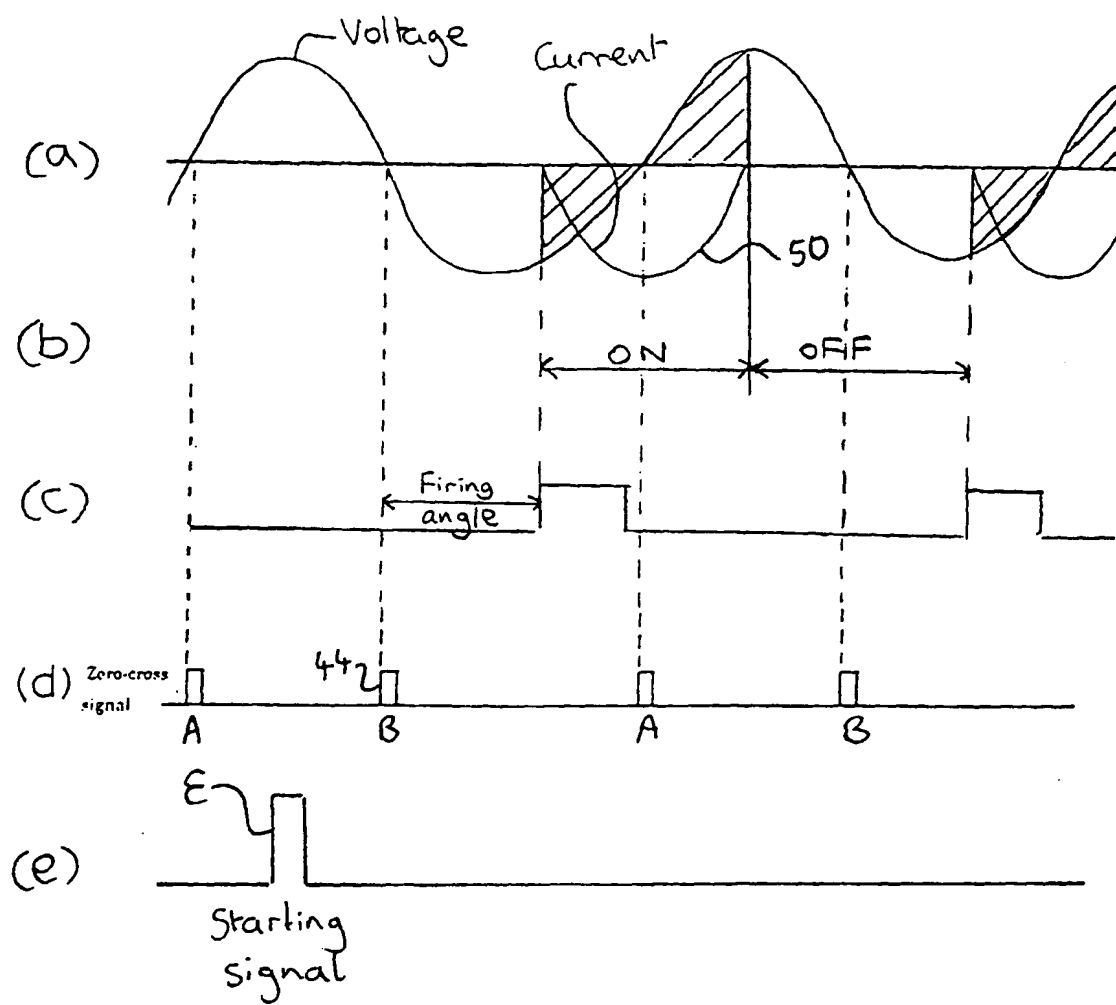 Voltage
Current
(a)
50
(b)
ON
OFF
(c)
Firing
angle
(d)
Zero-cross
signal
44
A
B
A
B
ε
(e)
Starting
signal